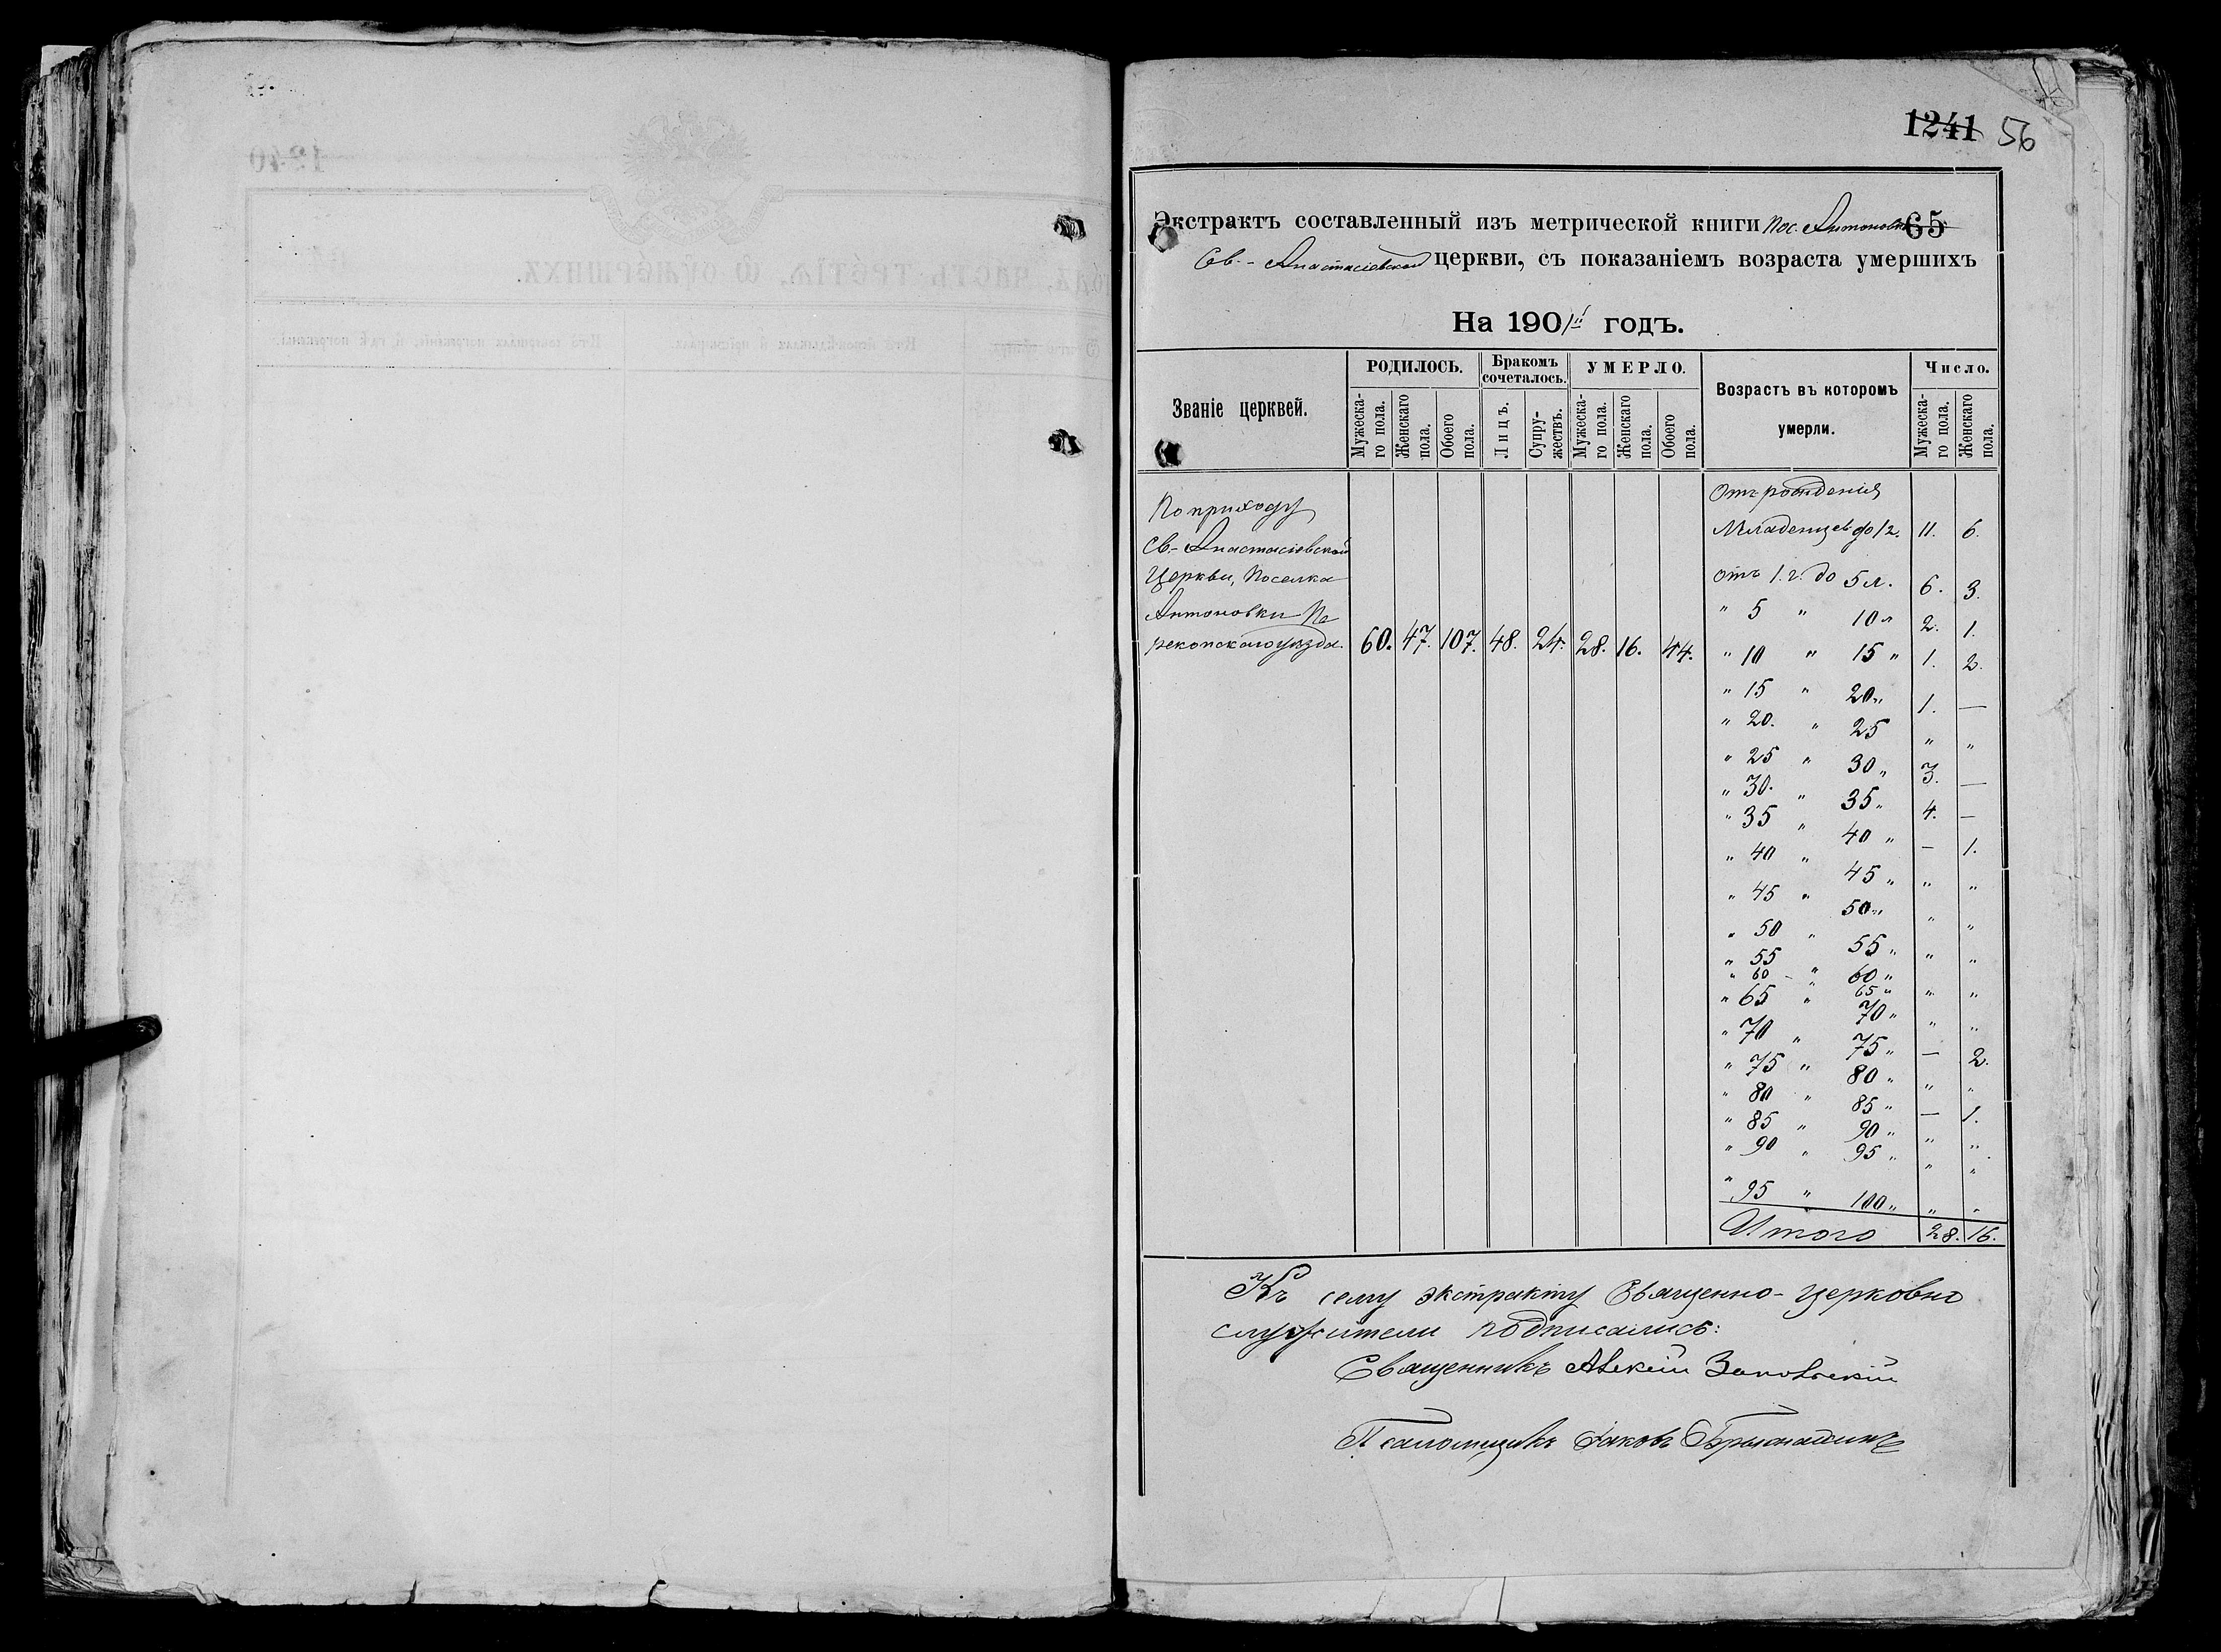 1241 56
Экстрактъ составленный изъ метрической книги пос. Антоновки 65
Св.-Анастасіевской церкви, съ показаніемъ возраста умершихъ
На 1901й годъ.
Званіе церквей.
РОДИЛОСЬ.
Бракомъ сочеталось.
УМЕРЛО.
Возрастъ въ которомъ умерли.
Число.
Мужеска-го пола.
Женскаго пола.
Обоего пола.
Лицъ.
Супру-жествъ.
Мужеска-го пола.
Женскаго пола.
Обоего пола.
Мужеска-го пола.
Женскаго пола.
По приходу
Св-Анастасіевской
Церкви, Поселка
Антоновки Пе
рекопскаго уѣзда. 60. 47. 107. 48. 24. 28. 16. 44.
Отъ рожденія
Младенцевъ до 1 г. 11. 6.
отъ 1. г. до 5 л. 6. 3.
" 5 " 10 " 2. 1.
" 10 " 15 " 1. 2.
" 15 " 20 " 1. —
" 20. " 25 " "
" 25 " 30 " 3. —
" 30. " 35 " 4. —
" 35 " 40 " — 1.
" 40 " 45 " " "
" 45 " 50 " " "
" 50 " 55 " " "
" 55 " 60 " " "
" 60 - " 65 "
" 65 " 70 " " "
" 70 " 75 " — 2.
" 75 " 80 " " "
" 80 " 85 " — 1.
" 85 " 90 " " "
" 90 " 95 " " "
" 95 " 100 " " "
Итого 28. 16.
Къ сему экстракту Священно-церковно
служители подписались:
Священникъ Алексій
Псаломщикъ Іаковъ
1240
часть третїѧ, ѡ оумершихъ.